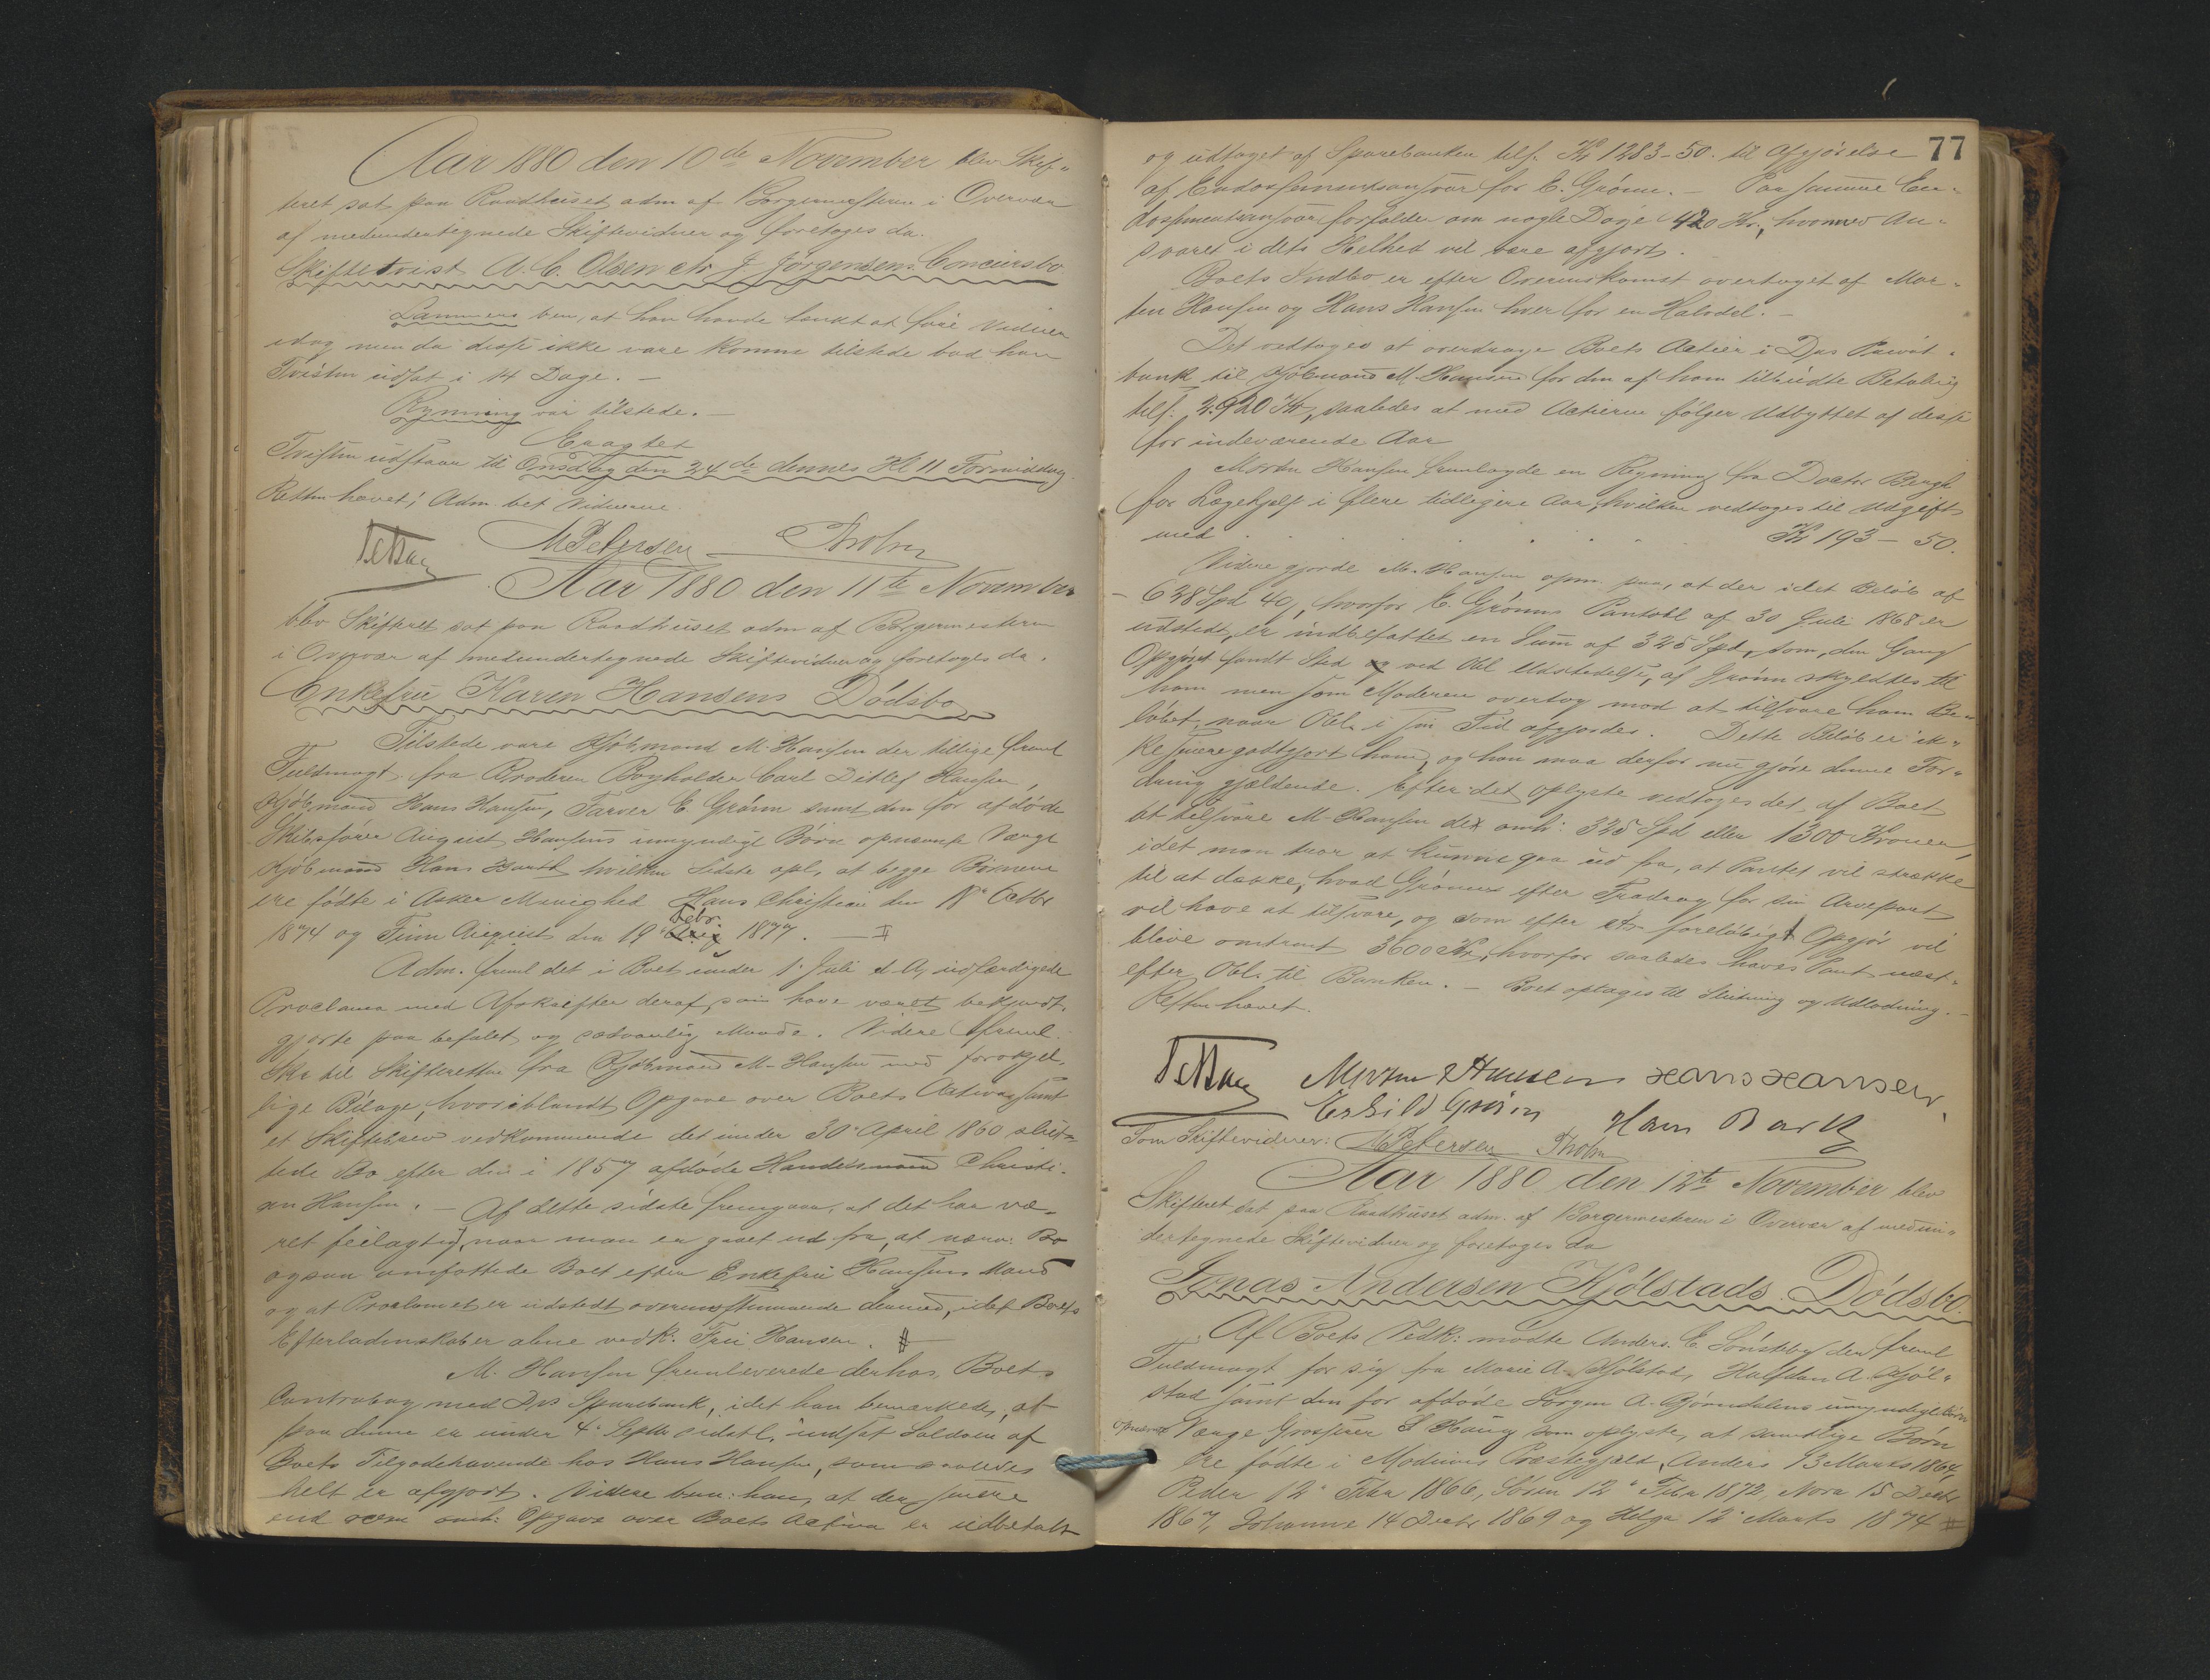 Aar 1880 den 10de November blev Skif-
teret sat paa Raadhuset adm af Borgermesteren i Overvær
af medundertegnede Skiftevidner og foretoges da.
Skiftetvist A. C. Olsen ctr J. Jørgensens Concursbo
Lammers bem, at han havde tænkt at føre Vidner
idag men da disse ikke vare komne tilstede bad han
Tvisten udsat i 14 Dage. —
Rynning var tilstede. —
Eragtet
Tvisten udstaar til Onsdag den 24de dennes Kl 11 Formiddag
Retten hævet; Adm. bet Vidnerne
M Petersen Tholm
Aar 1880 den 11te November
blev Skifteret sat paa Raadhuset adm af Borgermesteren
i Overvær af medundertegnede Skiftevidner og foretoges da.
Enkefru Karen Hansens Dødsbo
Tilstede vare Kjøbmand M. Hansen der tillige freml
Fuldmagt fra Broderen Bogholder Carl Ditlef Hansen,
Kjøbmand Hans Hansen, Farver E. Grønn samt den for afdøde
Skibsfører August Hansens umyndige Børn opnævnte Værge
Kjøbmand Hans Barth hvilken Sidste opl, at begge Børnene
ere fødte i Asker Menighed Hans Christian den 18 Octbr
1874 og Finn August den 19 Febr 1877. —
Adm. freml det i Boet under 1 Juli d. A. udfærdigede
Proclama med Afskrifter deraf, som have været bekjendt-
gjorte paa befalet og sædvanlig Maade. Videre freml.
Skr til Skifteretten fra Kjøbmand M. Hansen med forskjel-
lige Bilage, hvoriblandt Opgave over Boets Activa samt
et Skiftebrev vedkommende det under 30 April 1860 slut-
tede Bo efter den i 1857 afdøde Handelsmand Christi-
an Hansen. — Af dette sidste fremgaar, at det har væ-
ret feilagtigt, naar man er gaaet ud fra, at nævn: Bo
ogsaa omfattede Boet efter Enkefru Hansens Mand
og at Proclamet er udstedt overensstemmende dermed, idet Boets
Efterladenskaber alene vedk: Fru Hansen. #
M. Hansen fremleverede derhos Boets
Contrabog med Dms Sparebank, idet han bemærkede, at
paa denne er under 4 Septbr sidstl. indsat Saldoen af
Boets Tilgodehavende hos Hans Hansen, som saaledes
helt er afgjort. Videre bem: han, at der senere
end omh: Opgave over Boets Activa er udbetalt
77
og udtaget af Sparebanken tils. Kr 1283-50. til Afgjørelse
af Endossementsansvar for E. Grønn. — Paa samme En-
dossementsansvar forfalder om nogle Dage 420 Kr., hvormed An-
svaret i dets Helhed vil være afgjort.
Boets Indbo er efter Overenskomst overtaget af Mor-
ten Hansen og Hans Hansen hver for en Halvdel. —
Det vedtoges at overdrage Boets Actier i Dms Privat-
bank til Kjøbmand M. Hansen for den af ham tilbudte Betaling
tils: 2.920 Kr, saaledes at med Actierne følger Udbyttet af disse
for indeværende Aar
Morten Hansen fremlagde en Regning fra Doctor Bergh
for Lægehjælp i flere tidligere Aar, hvilken vedtoges til Udgift
med . . . . . . Kr 193 - 50.
Videre gjorde M. Hansen opm. paa, at der i det Beløb af
638 Spd 40, hvorfor E. Grønns Pantobl af 30 Juli 1868 er
udstedt, er indbefattet en Sum af 325 Spd, som, den Gang
Opgjøret fandt Sted ved Obl Udstedelse, af Grønn skyldtes til
ham men som Moderen overtog mod at tilsvare ham Be-
løbet, naar Obl. i sin Tid afgjordes. Dette Beløb er ik-
ke senere godtgjort ham, og han maa derfor nu gjøre denne For-
dring gjældende. Efter det oplyste vedtoges det, af Boet
at tilsvare M. Hansen det omh: 325 Spd eller 1300 Kroner,
idet man tror at kunne gaa ud fra, at Pantet vil strække
til at dække, hvad Grønn efter Fradrag for sin Arvepart
vil have at tilsvare, og som efter et foreløbigt Opgjør vil
blive omtrent 3600 Kr, hvorfor saaledes haves Pant næst-
efter Obl. til Banken. — Boet optages til Slutning og Udlodning. —
Retten hævet.
Morten Hansen Hans Hansen
Eskild Grønn Hans Barth
Som Skiftevidner: M Petersen Tholm
Aar 1880 den 12te November blev
Skifteret sat paa Raadhuset adm. af Borgermesteren i Overvær af medun-
dertegnede Skiftevidner og foretoges da
Jonas Andersen Kjølstads Dødsbo.
Af Boets Vedk: mødte Anders E. Sønsteby der freml
Fuldmagt for sig fra Marie A. Kjølstad, Halfdan A. Kjøl-
stad samt den for afdøde Jørgen A. Bjørndalens umyndige Børn
opnævnt Værge Grosserer S Haug som oplyste, at samtlige Børn
ere fødte i Modums Præstegjæld, Anders 13 Marts 1864,
Peder 12 Febr 1866, Søren 12 Febr 1872, Nora 15 Decbr
1867, Johanne 14 Decbr 1869 og Helga 12 Marts 1874 #